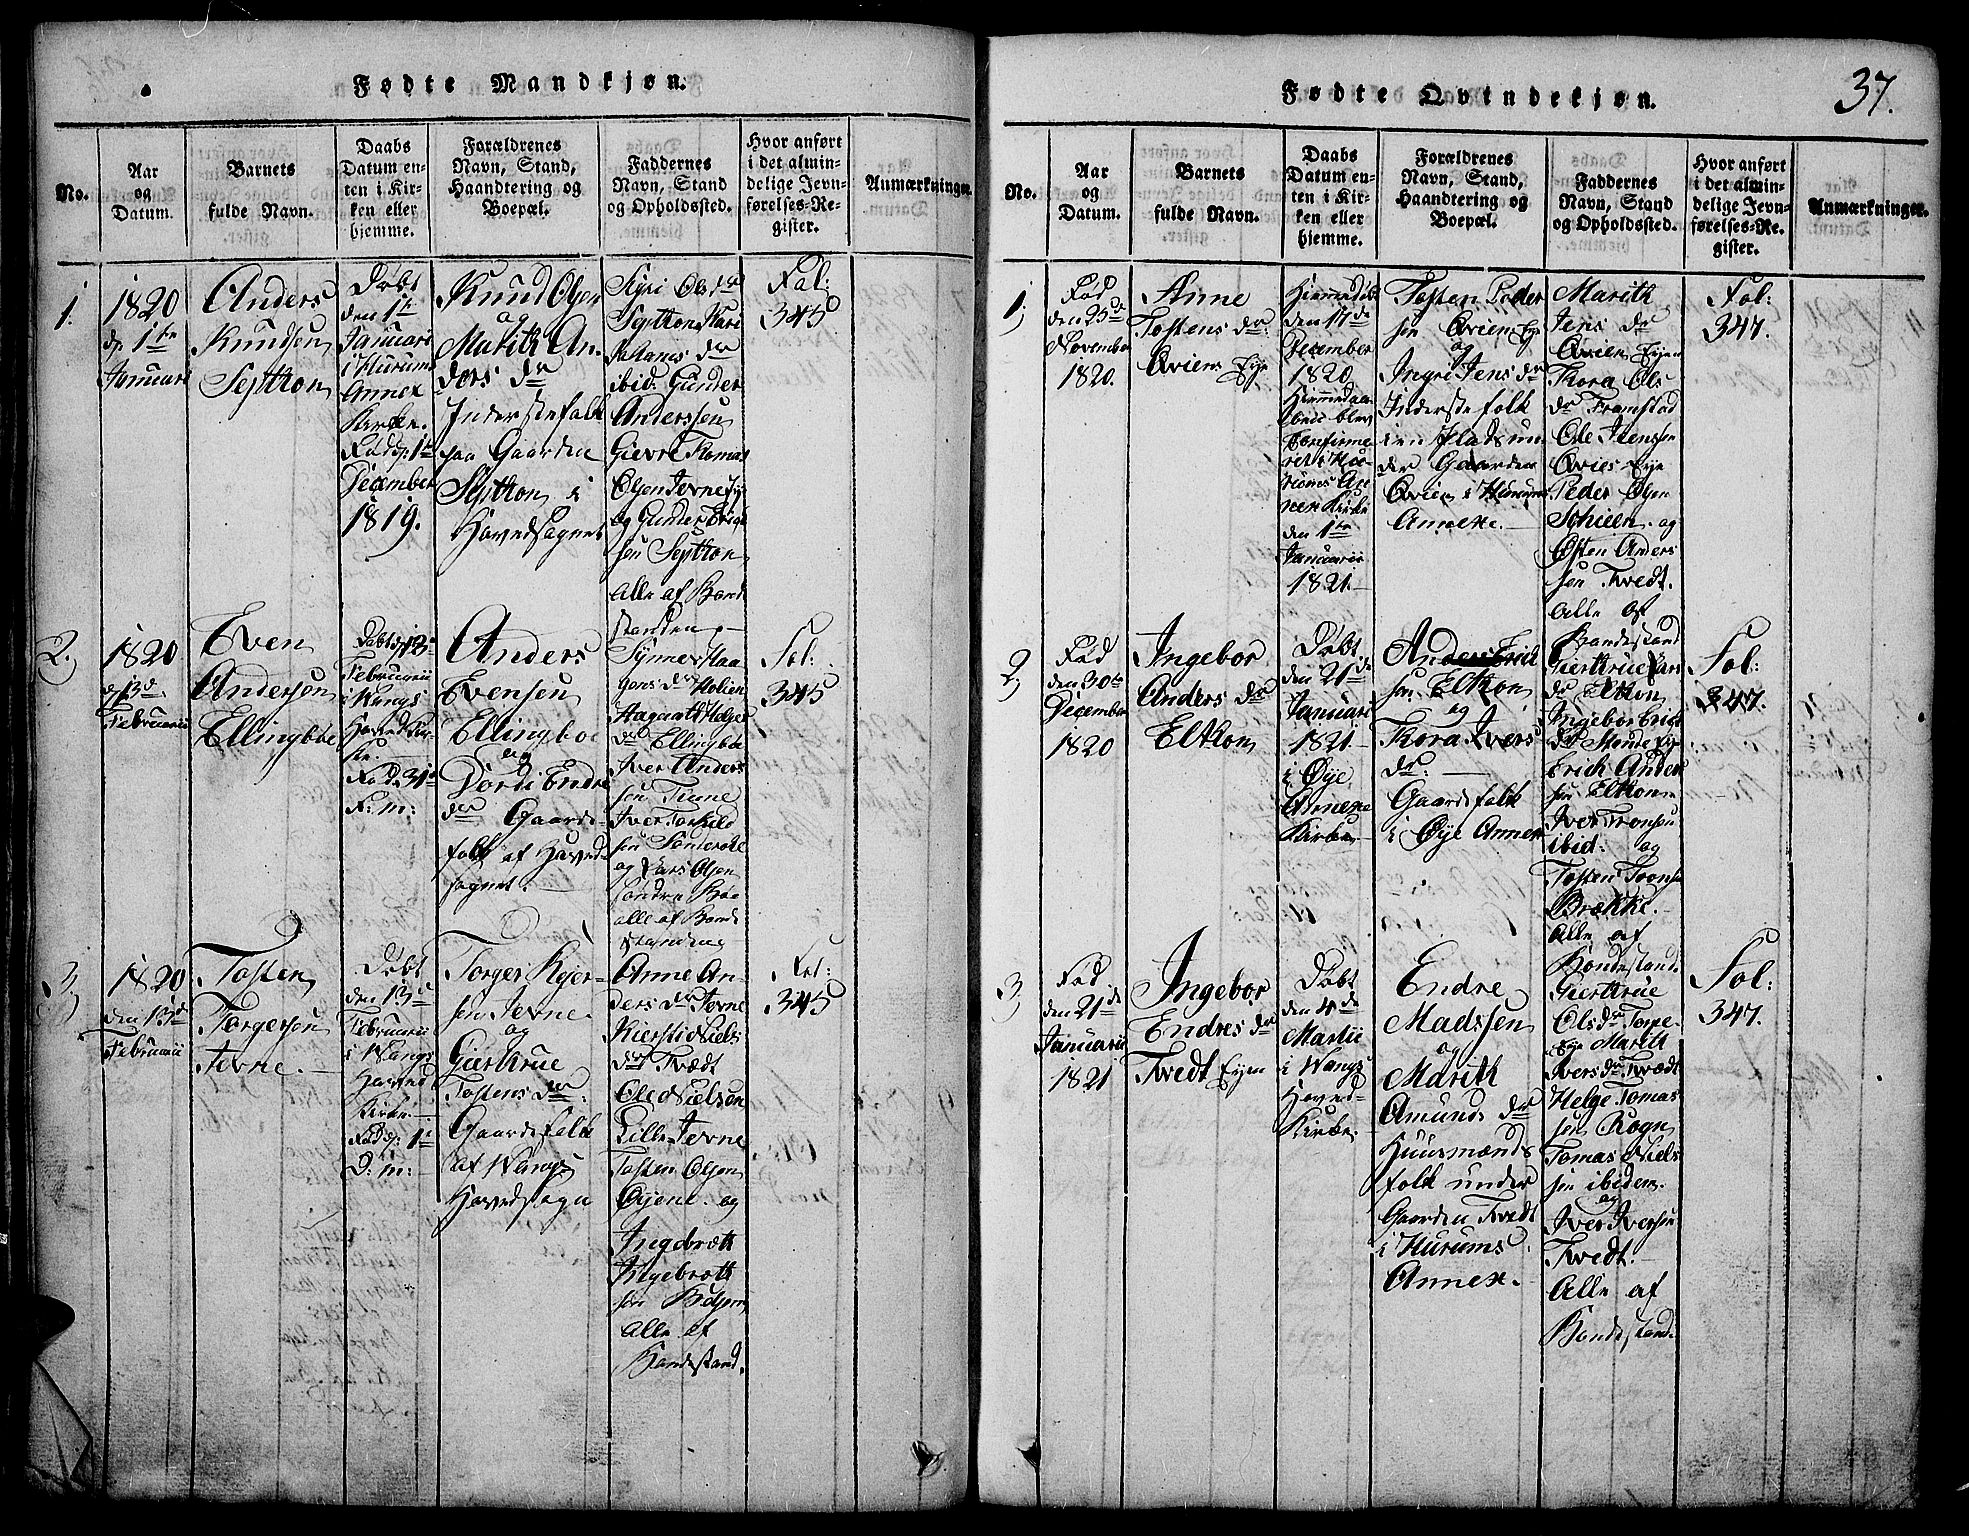 Fødte Mandkjøn.
No.
Aar
og
Datum.
Barnets
fulde Navn.
Daabs
Datum en-
ten i Kir-
ken eller
hjemme.
Forældrenes
Navn, Stand,
Haandtering og
Boepæl.
Faddernes
Navn, Stand
og Opholdssted.
Hvor anført
i det almin-
delige Jevn-
førelses-Re-
gister.
Anmærkninger.
1.
1820
d. 1te
Januari
Anders
Knudsen
Døbt
den 1te
Januari
i Hurums
Annex
Kirke.
Fød d: 1te
December
1819.
Knud Olsen
og
Marith An-
ders dr
Inderstefolk
paa Gaarden
i
Hovedsognet
Ols dr
Kari
dr
ibid: Gunder
Anderssøn
Tomas
Olsen
og Gunder
søn
Alle af Bond
standen
Fol:
345
2.
1820
d. 13d
Februarii
Even
Andersøn
Ellingbøe
Døbt d. 13
Februarii
i Wangs
Hoved Kir-
ke.
Fød d. 31
F: m:
Anders
Evensøn
Ellingboe
og
Dordi Endre
dr Gaard-
folk af Hoved
sognet.
dr
Helge
dr Ellingbøe
Iver Anders
søn
Iver Torkild
søn
og Lars Olsen
Søndre Bøe
alle af Bond
standen
Fol:
345
3.
1820
den 13d
Februarii
Tosten
Torgersøn
Jevne.
Døbt
den 13d
Februarii
i Wangs
Hoved
Kirke.
Fød d: 1te
D: m:
Torger
søn Jevne
og
Giertrue
Tostens dr
Gaardsfolk
af Wangs
Hovedsogn
Anne An-
ders dr Jevne
Kiersti Niels
dr Tvedt
Ole Nielsøn
Lille Jevne
Tosten Olsen
Øyene og
Ingebræth
Ingebræth
søn
Alle af
Bondestand.
Fol:
345
Fødte Qvindekjøn.
37.
No.
Aar
og
Datum.
Barnets
fulde Navn.
Daabs
Datum en-
ten i Kir-
ken eller
hjemme.
Forældrenes
Navn, Stand,
Haandtering og
Boepæl.
Faddernes
Navn, Stand
og Opholdssted.
Hvor anført
i det almin-
delige Jevn-
førelses-Re-
gister.
Anmærkninger.
1.
Fød
den 25de
November
1820.
Anne
Tostens dr.
Qvien Eye
den 17de
December
1820
blev
i
An-
nex Kirke
den 1te
Januarii
1821.
Tosten Peder
søn Qviens Eye
og
Ingri Jens dr
Inderstefolk
i en Plads un
der Gaarden
Qvien i Hurums
Annexe.
Marith
Jens dr
Qvien Eyen
Thora Ols
dr Framstad
Ole Jenssøn
Qvies Eye
Peder Olsen
og
Østen Anders
søn Tvedt.
Alle af
Bondestand
Fol:
347.
2.
Fød
den 30te
December
1820
Ingebor
Anders dr
Elthon
Døbt
den 21de
Januari
1821
i Øye
Annexe
Kirke
Anders Erick
søn Elthon
og
Thora Ivers
dr.
Gaardsfolk
i Øye Annex
Giertrue Lars
dr Elthon
Ingebor Erics
dr
Erich Anders
søn Elthon
Iver Tronsøn
ibid: og
Tosten Trons
Brække.
Alle af
Bondestand
Fol:
347.
3.
Fød
den 21de
Januarii
1821
Ingebor
Endres dr
Tvedt Eyen
Døbt
den 4de
Martii
i Wangs
Hoved-
Kirke.
Endre
Madssen
og
Marith
Amunds dr
Huusmands
folk under
Gaarden Tvedt
i Hurums
Annex.
Giertrue
Ols dr
Eye Marith
Ivers dr Tvædt
Helge Tomas
søn Rogn
Tomas Niels
søn ibidem
og
Iver Iversøn
Tvedt.
Alle af
Bondestand.
Fol:
347.